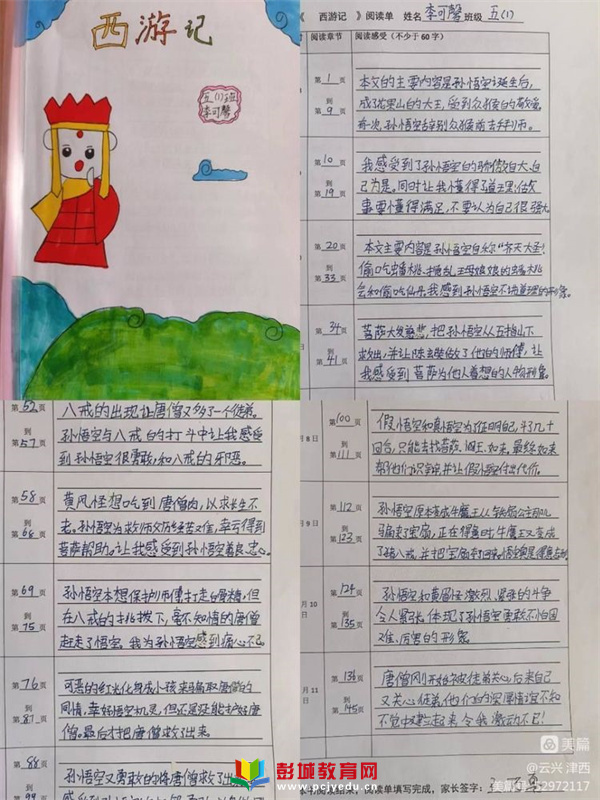 西游记
五(1)班
李可馨
《 西游记 》阅读单 姓名 李可馨 班级 五(1)
阅读章节
阅读感受(不少于60字)
第1页
到
第9页
本文的主要内容是孙悟空诞生后,
成了花果山的大王,受到众猴的敬爱,
第10页
到
第19页
我感受到了孙悟空的骄傲自大、自
己为是。同时让我懂得了道理:做
事要懂得满足,不要认为自己很强大。
第20页
到
第33页
本文主要内容是孙悟空自称“齐天大圣”
偷吃蟠桃、扰乱王母娘娘的蟠桃
会和偷吃仙丹,我感到孙悟空不讲道理的形象。
第34页
到
第41页
菩萨大发慈悲,把孙悟空从五指山下
救出,并让陈玄奘做了他的师傅,让
我感受到菩萨为他人着想的人物形象。
第52页
到
第57页
八戒的出现让唐僧又多了一个徒弟。
孙悟空与八戒的打斗中让我感受
到孙悟空很勇敢,和八戒的邪恶。
第58页
到
第68页
黄风怪想吃到唐僧肉,以求长生不
老。孙悟空为救师父历经苦难,幸亏得到
菩萨帮助。让我感受到孙悟空善良、忠心。
第69页
到
第75页
孙悟空本想保护师傅打走白骨精,但
在八戒的挑拨下,毫不知情的唐僧
赶走了悟空。我为孙悟空感到痛心不已。
第76页
到
第87页
可恶的红光化身成小孩来骗取唐僧的
同情,幸好悟空机灵,但还是没能护好唐
僧。最后才把唐僧救了出来。
第88页
孙悟空又勇敢的将唐僧救了出
月8日
第100页
到
第111页
假悟空和真悟空为了证明自己,斗了几十
回合,只能去找菩萨、阎王、如来,最终如来
帮他们识别并让假悟空付出代价。
月9日
第112页
到
第123页
孙悟空原本变成牛魔王从铁扇公主那儿
骗来了宝扇,正在得意时牛魔王又变成
了猪八戒,并把宝扇
月10日
第124页
到
第135页
孙悟空和黄眉怪激烈、紧张的斗争
令人紧张,体现了孙悟空勇敢不怕困
难、厉害的形象
月11日
第136页
到
第145页
唐僧刚开始被徒弟关心后来自己
又关心徒弟,他们之间的深厚情谊不知
不觉中令我激动不已!
阅读单填写完成,家长签字:
美篇
@云兴津西
美篇号:52972117
彭城教育网
www.pcjyedu.cn